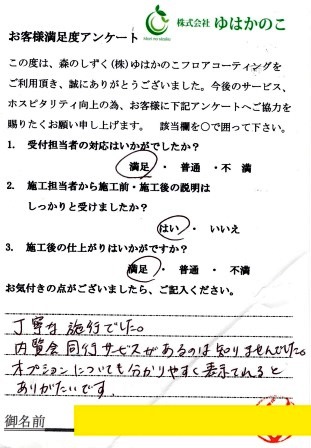 株式会社 ゆはかのこ
お客様満足度アンケート
この度は、森のしずく(株)ゆはかのこフロアコーティングを
ご利用頂き、誠にありがとうございました。今後のサービス、
ホスピタリティ向上の為、お客様に下記アンケートへご協力を
賜りたくお願い申し上げます。 該当欄を〇で囲って下さい。
1. 受付担当者の対応はいかがでしたか?
満足 ・ 普通 ・不 満
2. 施工担当者から施工前・施工後の説明は
しっかりと受けましたか?
はい ・ いいえ
3. 施工後の仕上がりはいかがですか?
満足 ・ 普通 ・ 不満
お気付きの点がございましたら、ご記入ください。
丁寧な施行でした。
内覧会同行サービスがあるのは知りませんでした。
オプションについても分かりやすく表示てれると
ありがたいです。
御名前